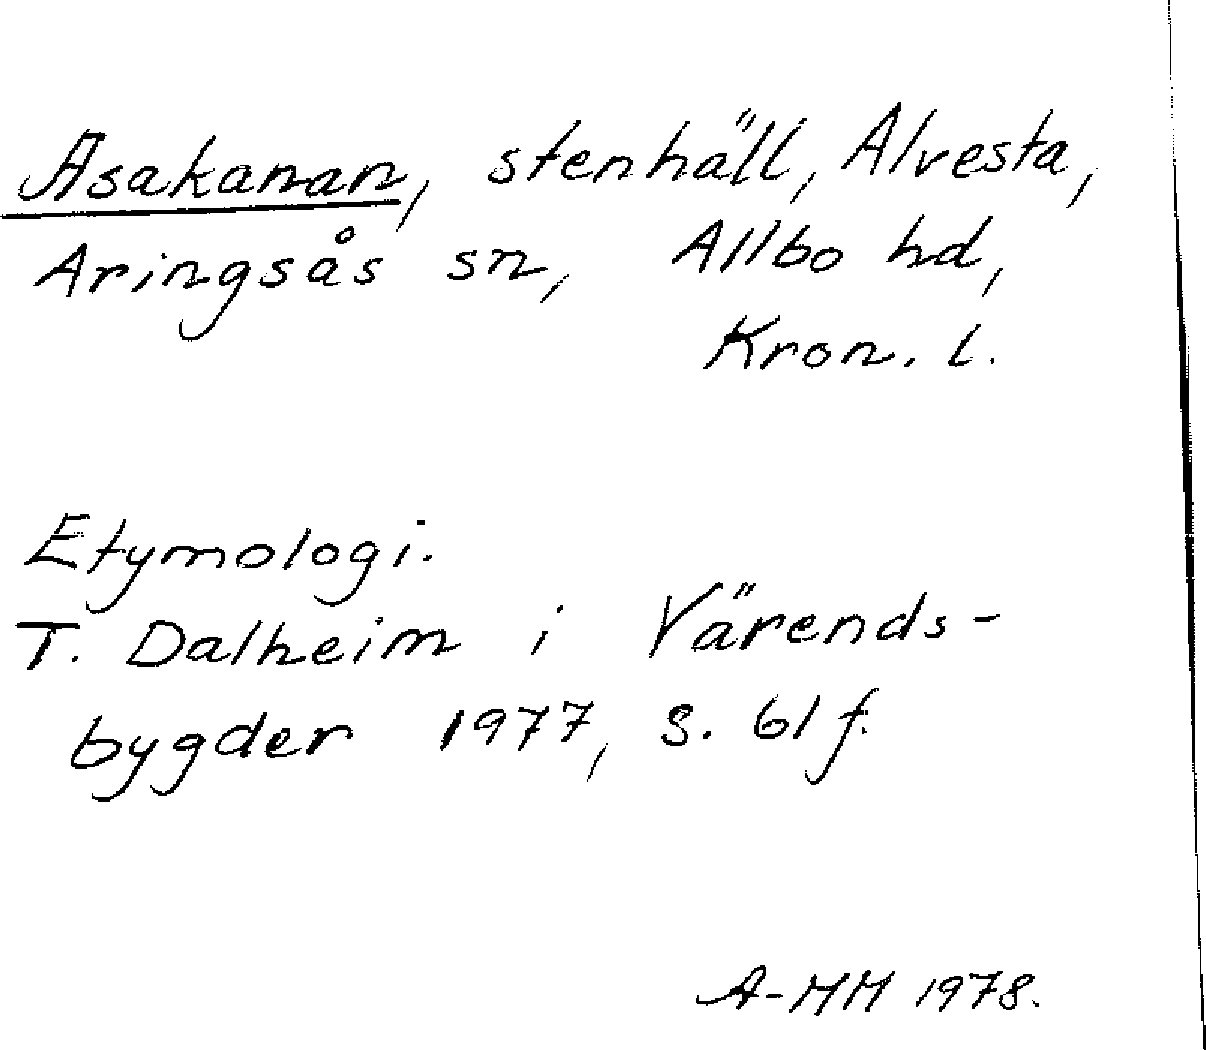 Asakanan, stenhäll, Alvesta,
Aringsås sn, Allbo hd,
Kron. l.
Etymologi.
T. Dalheim i Värends-
bygder 1977, s. 61 f.
A-MM 1978.